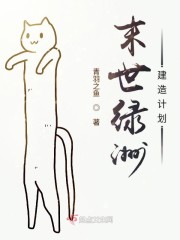 末世绿洲
建造计划
青羽之鱼
◎著